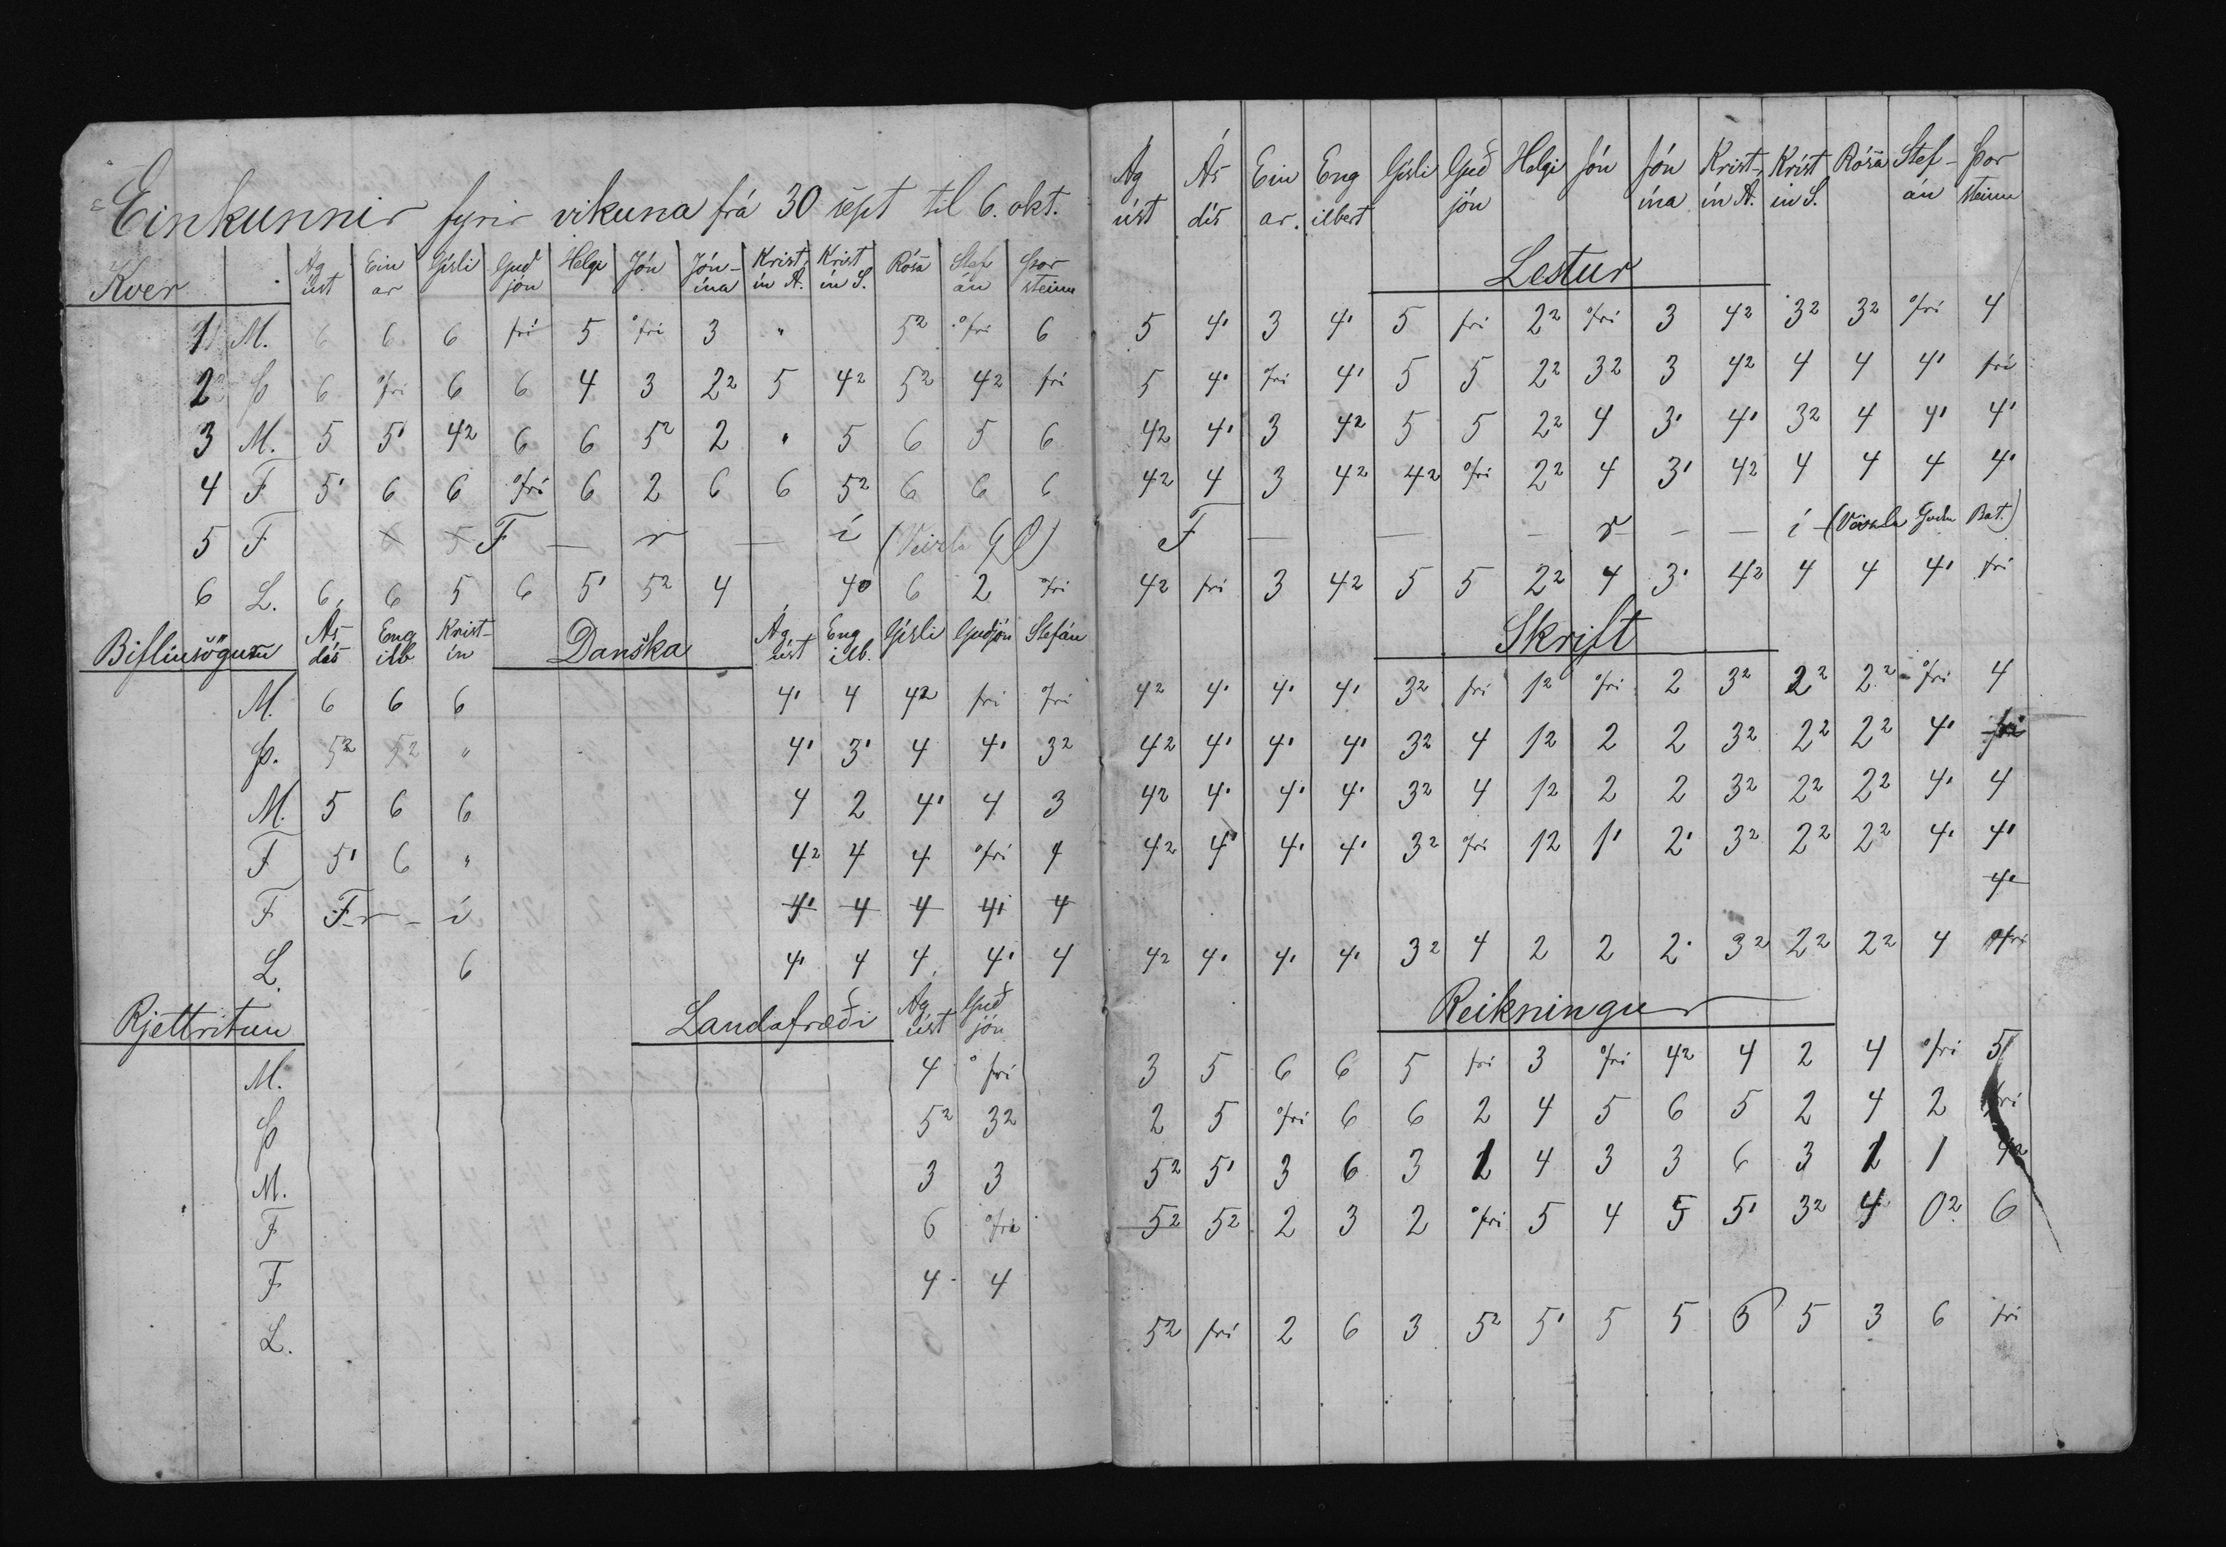 Einkunnir fyrir vikuna frá 30 sept til 6. okt.
Kver Ágúst Einar Gísli Guðjón Helgi Jón Jónína Kristín Á. Kristín S. Rósa Stefán Þorsteinn
1 M. 6 6 6 frí 5 frí 3 " 5² frí 6
2 Þ 6 frí 6 6 4 3 2² 5 4² 5² 4² frí
3 M. 5 5' 4² 6 6 5² 2 " 5 6 5 6
4 F 5' 6 6 frí 6 2 6 6 5² 6 6 6
5 F F — r — í (Veizla G Ó)
6 L. 6 6 5 6 5' 5² 4 6 2 frí
Biflíusögum Ásdís Engilb Kristín Danska Ágúst Engilb. Gísli Guðjón Stefán
M. 6 6 6 4' 4 4² frí frí
Þ. 5² 5² " 4' 3' 4 4' 3²
M. 5 6 6 4 2 4' 4 3
F 5' 6 " 4² 4 4 frí 4
F F – r – í 4' 4 4 4' 4
L. 6 4' 4 4 4' 4
Rjettritun Landafræði Ágúst Guðjón
M. 4 frí
Þ 5² 3²
M. 3 3
F 6 frí
F 4 4
L.
Ágúst Ásdís Einar. Engilbert Gísli Guðjón Helgi Jón Jónína Kristín Á. Kristín S. Rósa Stefán Þorsteinn
Lestur
5 4' 3 4' 5 frí 2² frí 3 4² 3² 3² frí 4
5 4' frí 4' 5 5 2² 3² 3 4² 4 4 4' frí
4² 4' 3 4² 5 5 2² 4 3' 4' 3² 4 4' 4'
4² 4 3 4² 4² frí 2² 4 3' 4² 4 4 4 4'
F — — — r — — í – (Veisla
4² frí 3 4² 5 5 2² 4 3' 4² 4 4 4' frí
Skrift
4² 4' 4' 4' 3² frí 1² frí 2 3² 2² 2² frí 4
4² 4' 4' 4' 3² 4 1² 2 2 3² 2² 2² 4' frí
4² 4' 4' 4' 3² 4 1² 2 2 3² 2² 2² 4' 4
4² 4' 4' 4' 3² frí 1² 1' 2' 3² 2² 2² 4' 4'
4'
4² 4' 4' 4' 3² 4 2 2 2' 3² 2² 2² 4 frí
Reikningur
3 5 6 6 5 frí 3 frí 4² 4 2 4 frí 5
2 5 frí 6 6 2 4 5 6 5 2 4 2 frí
5² 5' 3 6 3 1 4 3 3 6 3 1 4²
5² 5² 2 3 2 frí 5 4 5 5' 3² 4 0² 6
5² frí 2 6 3 5² 5' 5 5 5 3 6 frí